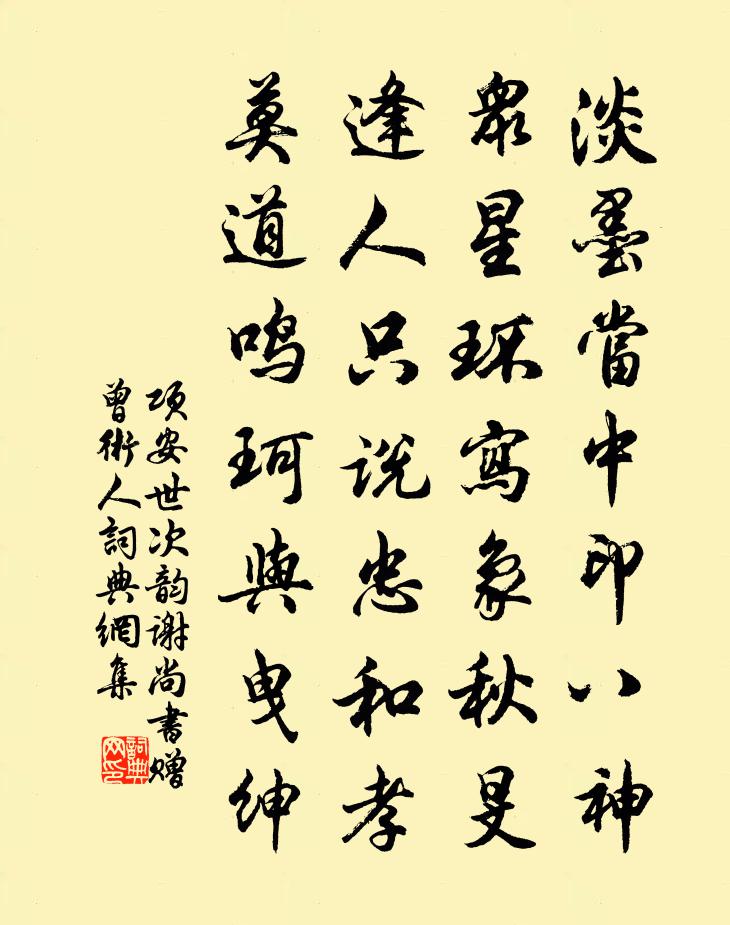 淡墨當中印八神
眾星環寫象秋旻
逢人只説忠和孝
莫道鳴珂與曳紳
项安世次韵谢尚書贈
曾術人詞典網集
詞典网印